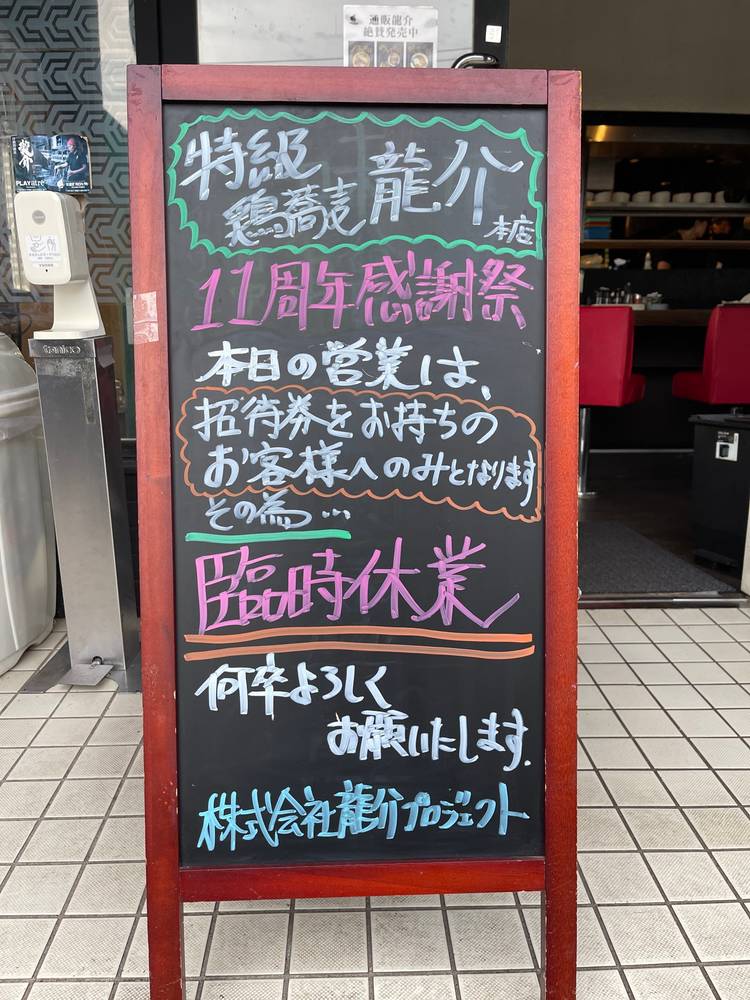 通販龍介
絶賛発売中
龍介
特級
鶏蕎麦 龍介
本店
11周年感謝祭
本日の営業は、
招待券をお持ちの
お客様へのみとなります
その為…
臨時休業
何卒よろしく
お願いいたします.
株式会社龍介プロジェクト